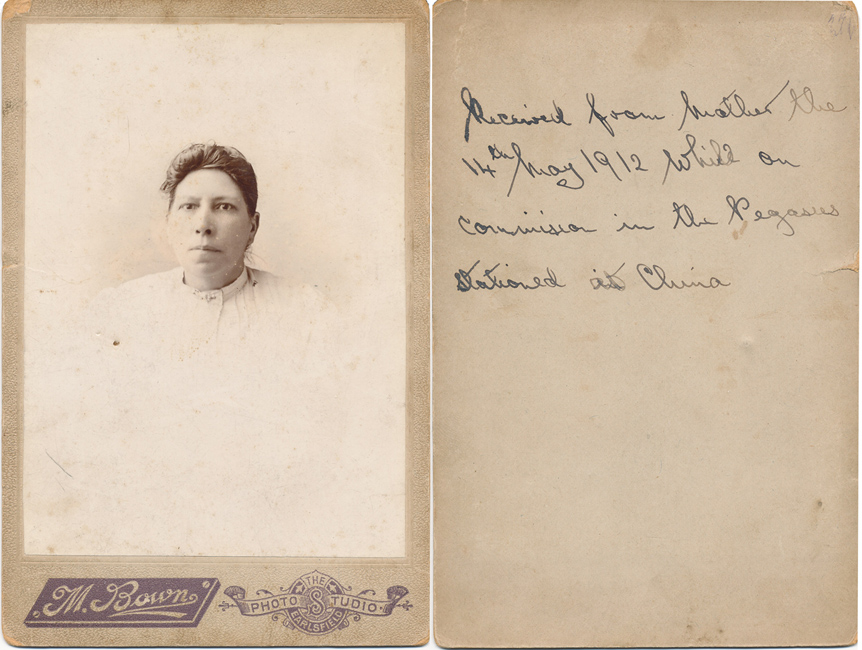 M. Bown.
THE
PHOTO STUDIO
EARLSFIELD
Received from Mother the
14th May 1912 Whilst on
commision in the Pegasus
stationed at China